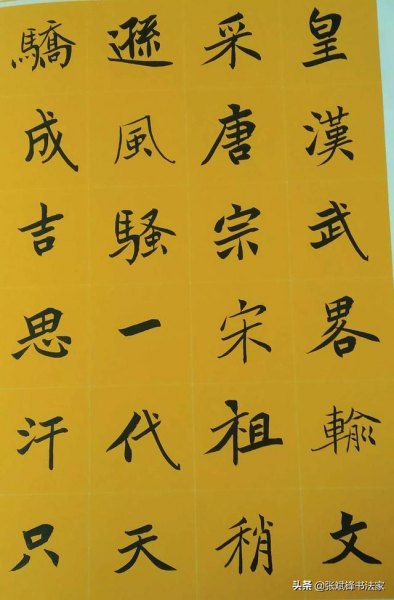 皇漢武畧輸文
采唐宗宋祖稍
遜風騷一代天
驕成吉思汗只
头条 @张斌锋书法家